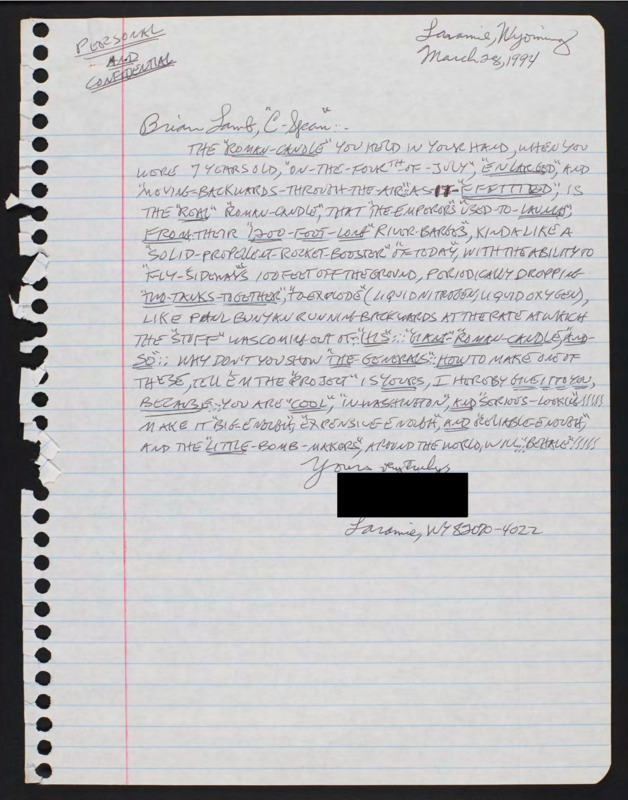 PERSONAL
AND
CONFIDENTIAL
Laramie, Wyoming
March 28, 1994
Brian Lamb, "C-Span":.
THE "ROMAN-CANDLE" YOU HELD IN YOUR HAND, WHEN YOU
WERE 7 YEARS OLD, "ON-THE-FOURTH-OF-JULY", "ENLARGED", AND
"MOVING-BACKWARDS-THROUGH-THE-AIR" AS IT "EFFTTTED", IS
THE "REAL" "ROMAN-CANDLE", THAT "THE EMPERORS" USED-TO-LAUNCH",
FROM THEIR "200-FOOT-LONG" RIVER-BARGES, KINDA LIKE A
"SOLID-PROPELLENT-ROCKET-BOOSTER" OF TODAY, WITH THE ABILITY TO
"FLY-SIDEWAYS 100 FEET OFF THE GROUND, PERIODICALLY DROPPING
"TWO-TANKS-TOGETHER", "TO EXPLODE" (LIQUID NITROGEN, LIQUID OXYGEN),
LIKE PAUL BUNYAN RUNNING BACKWARDS AT THE RATE AT WHICH
THE "STUFF" WAS COMING OUT OF "HIS":: "GIANT-ROMAN-CANDLE", AND-
SO:: WHY DON'T YOU SHOW "THE GENERALS": HOW TO MAKE ONE OF
THESE, TELL 'EM THE "PROJECT" IS YOURS, I HEREBY GIVE IT TO YOU,
BECAUSE: YOU ARE "COOL", "IN WASHINGTON", AND "SERIOUS-LOOKIN'!!!!!
MAKE IT "BIG-ENOUGH", "EXPENSIVE-ENOUGH", AND "RELIABLE-ENOUGH",
AND THE "LITTLE-BOMB-MAKERS", AROUND THE WORLD, WILL "BEHAVE"!!!!!
Yours very Truly,
Laramie, WY 82070-4022